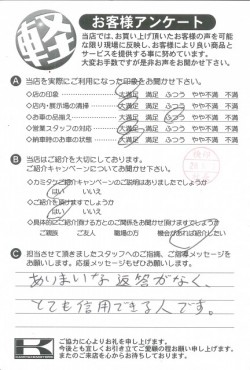 軽
お客様アンケート
当店では、お買い上げ頂いたお客様の声を可能
な限り現場に反映し、お客様により良い商品と
サービスを提供する事に努めています。
大変お手数ですが是非お声をお聞かせ下さい。
A 当店を実際にご利用になった印象をお聞かせ下さい。
◇店の印象 大満足 満足 ふつう やや不満 不満
◇店内・展示場の清掃 大満足 満足 ふつう やや不満 不満
◇お車の品揃え 大満足 満足 ふつう やや不満 不満
◇営業スタッフの対応 大満足 満足 ふつう やや不満 不満
◇納車時のお車の状態 大満足 満足 ふつう やや不満 不満
B 当店はご紹介を大切にしております。
ご紹介キャンペーンについてお聞かせ下さい。
◇カミタケご紹介キャンペーンのご説明はありましたでしょうか
はい いいえ
◇ご紹介を頂けますでしょうか
はい いいえ
◇具体的にご紹介頂ける方とのご関係をお聞かせ頂けますでしょうか
ご親戚 ご友人 職場の方 機会があれば紹介したい
C 担当させて頂きましたスタッフへのご指摘、ご指導メッセージを
お願いします。応援メッセージもぜひお願いします。
ありまいな返答がなく、
とても信用できる人です。
K
ご協力に心よりお礼を申し上げます。
今後とも宜しくお引き立てご愛顧の程お願い申し上げます。
またのご来店を心からお待ちしております。